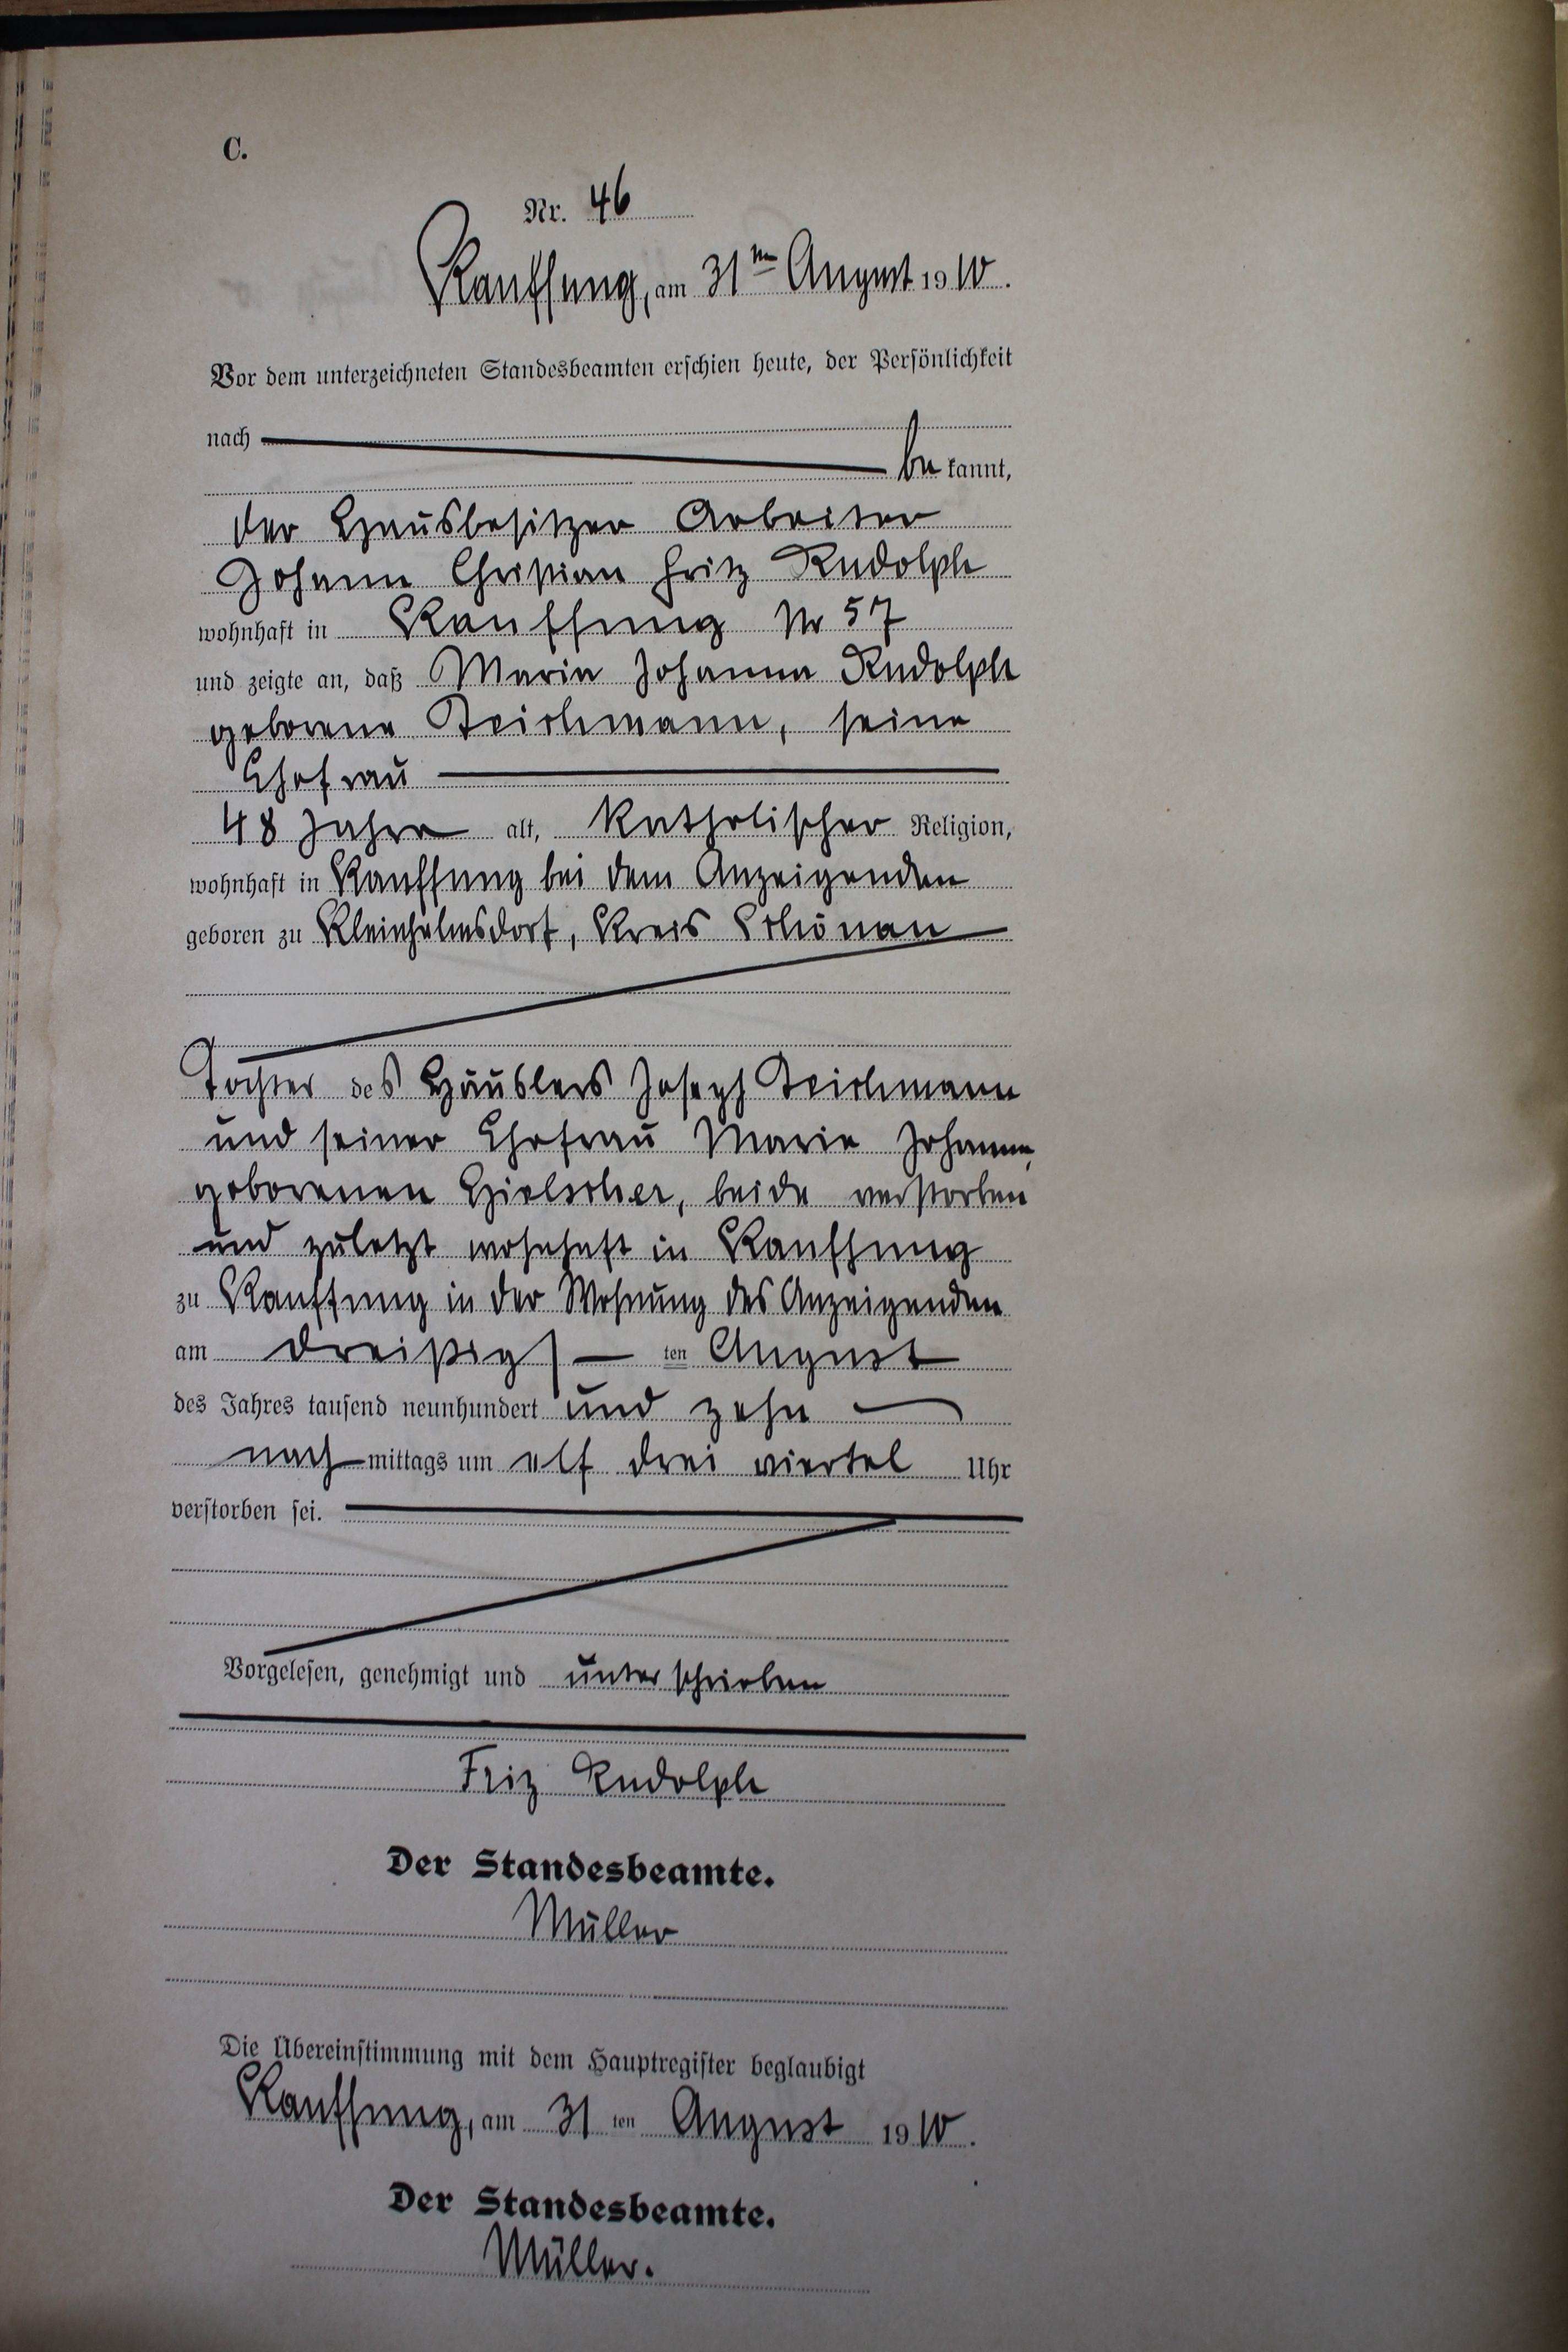 C.
Nr. 46
Kauffung, am 31ten August 1910.
Vor dem unterzeichneten Standesbeamten erschien heute, der Persönlichkeit
nach
be kannt,
der Hausbesitzer Arbeiter
Johann Christian Fritz Rudolph
wohnhaft in Kauffung Nr 57
und zeigte an, daß Maria Johanna Rudolph
geborene Teichmann, seine
Ehefrau
48 Jahre alt, katholischer Religion,
wohnhaft in Kauffung bei dem Anzeigenden
geboren zu Kleinhelmsdorf, Kreis Schönau
Tochter des Häuslers Joseph Teichmann
und seiner Ehefrau Maria Johanna,
geborenen Hielscher, beide verstorben
und zuletzt wohnhaft in Kauffung
zu Kauffung in der Wohnung des Anzeigenden
am dreißigs ten August
des Jahres tausend neunhundert und zehn
nach mittags um elf drei viertel Uhr
verstorben sei.
Vorgelesen, genehmigt und unterschrieben
Friz Rudolph
Der Standesbeamte.
Müller
Die Übereinstimmung mit dem Hauptregister beglaubigt
Kauffung, am 31 ten August 1910.
Der Standesbeamte.
Müller.